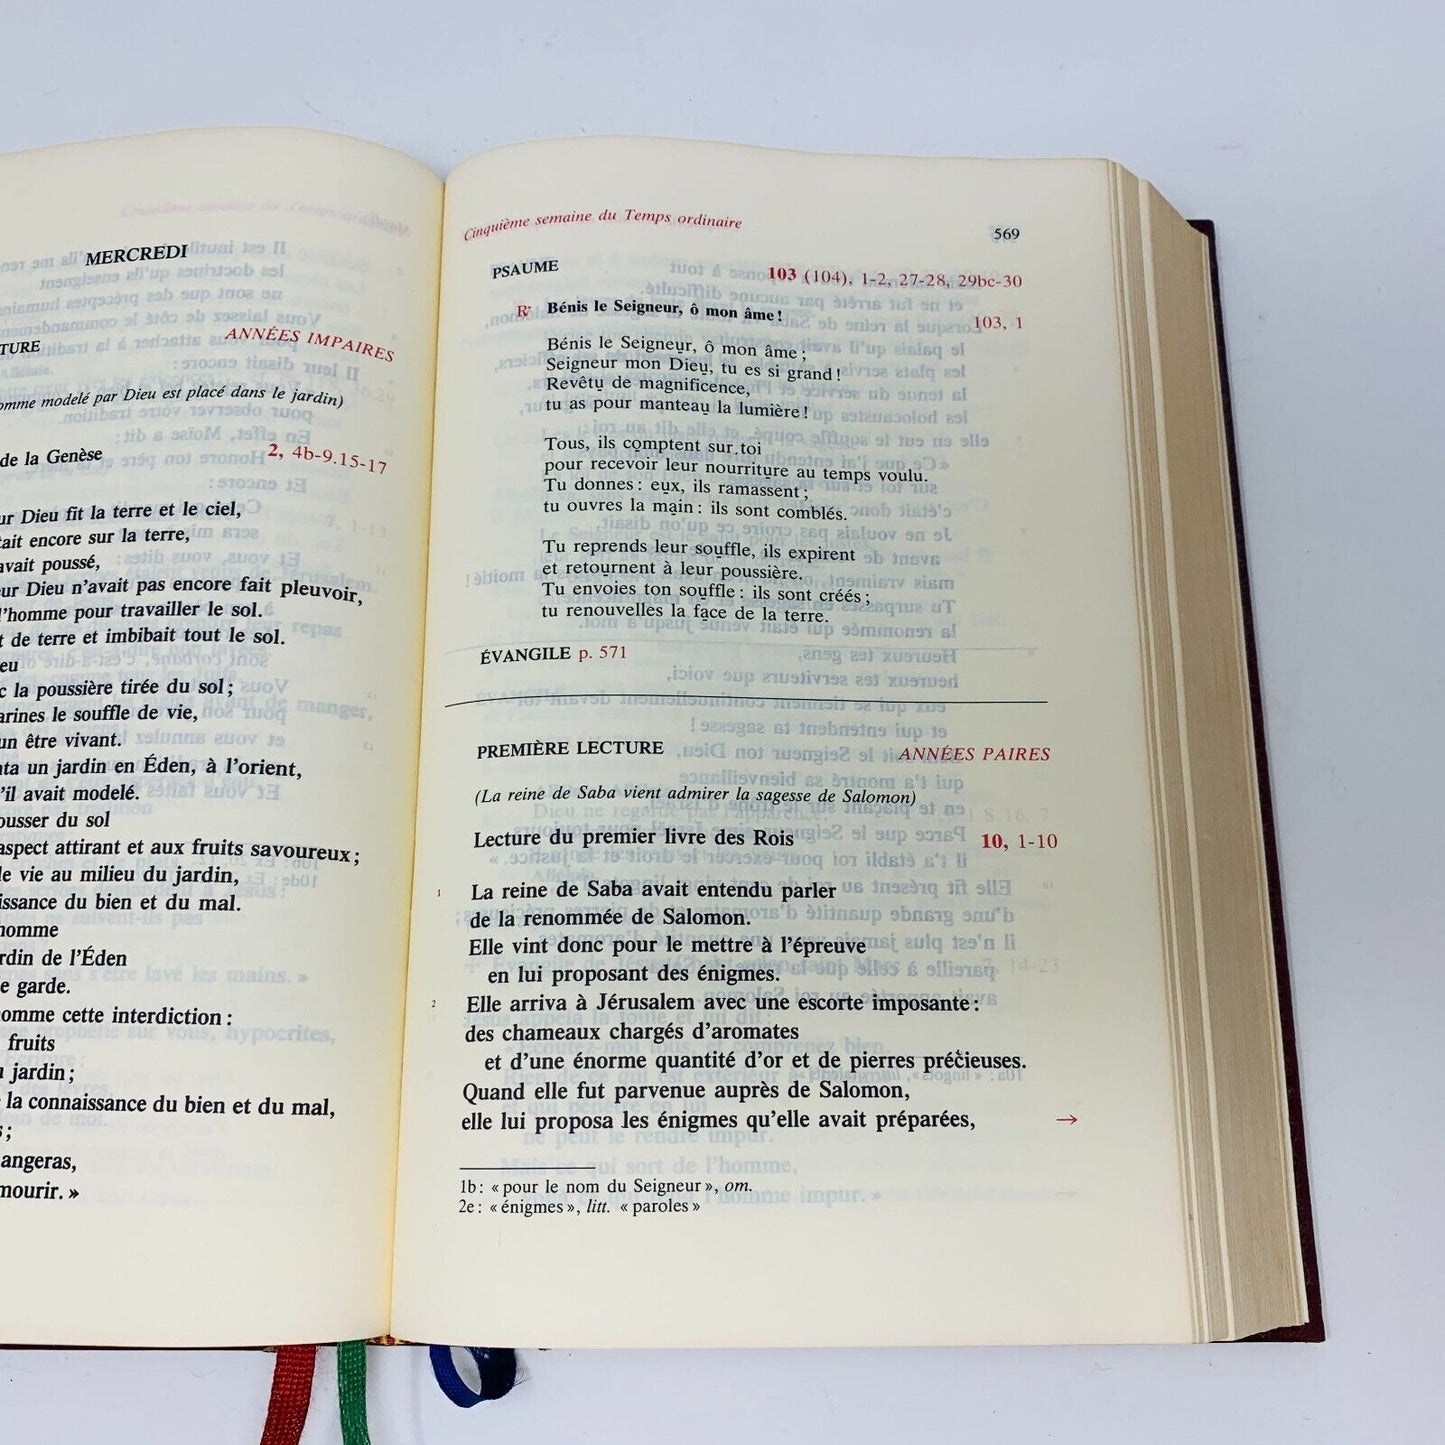 MERCREDI
ANNÉES IMPAIRES
(104)
modelé par Dieu est placé dans le jardin)
de la Genèse 2, 4b-9.15-17
Dieu fit la terre et le ciel,
encore sur la terre,
avait poussé,
Dieu n'avait pas encore fait pleuvoir,
l'homme pour travailler le sol.
de terre et imbibait tout le sol.
la poussière tirée du sol ;
le souffle de vie,
un être vivant.
un jardin en Éden, à l'orient,
avait modelé.
du sol
aspect attirant et aux fruits savoureux ;
vie au milieu du jardin,
du bien et du mal.
de l'Éden
garde.
cette interdiction :
fruits
jardin ;
la connaissance du bien et du mal,
mourir. »
Cinquième semaine du Temps ordinaire 569
PSAUME 103 (104), 1-2, 27-28, 29bc-30
R Bénis le Seigneur, ô mon âme ! 103, 1
Bénis le Seigneur, ô mon âme ;
Seigneur mon Dieu, tu es si grand !
Revêtu de magnificence,
tu as pour manteau la lumière !
Tous, ils comptent sur toi
pour recevoir leur nourriture au temps voulu.
Tu donnes : eux, ils ramassent ;
tu ouvres la main : ils sont comblés.
Tu reprends leur souffle, ils expirent
et retournent à leur poussière.
Tu envoies ton souffle : ils sont créés ;
tu renouvelles la face de la terre.
ÉVANGILE p. 571
PREMIÈRE LECTURE ANNÉES PAIRES
(La reine de Saba vient admirer la sagesse de Salomon)
Lecture du premier livre des Rois 10, 1-10
1 La reine de Saba avait entendu parler
de la renommée de Salomon.
Elle vint donc pour le mettre à l'épreuve
en lui proposant des énigmes.
2 Elle arriva à Jérusalem avec une escorte imposante :
des chameaux chargés d'aromates
et d'une énorme quantité d'or et de pierres précieuses.
Quand elle fut parvenue auprès de Salomon,
elle lui proposa les énigmes qu'elle avait préparées, →
1b : « pour le nom du Seigneur », om.
2e : « énigmes », litt. « paroles »